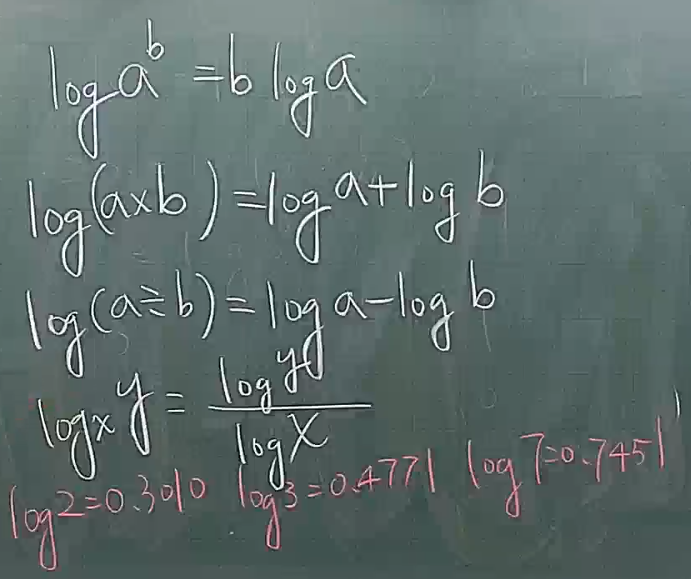 log a^b = b log a
log(a×b) = log a + log b
log(a÷b) = log a − log b
log_x y = \frac{log y}{log x}
log2=0.3010 log3=0.4771 log7=0.7451